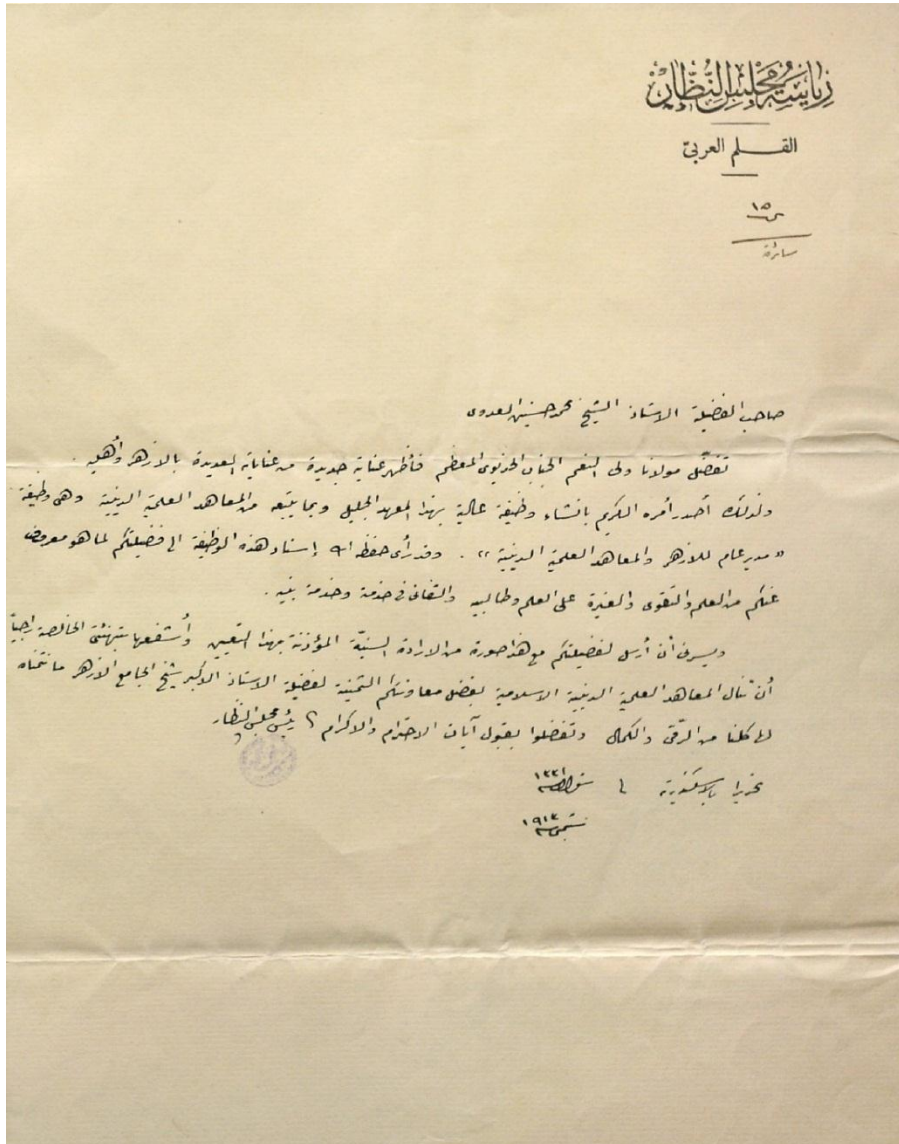 رياسة مجلس النظار
القلم العربى
١٥
سائرة
صاحب الفضيلة الاستاذ الشيخ محمد حسنين العدوى
تفضّل مولانا ولى النعم الجناب الخديوى المعظم فأظهر عناية جديدة من عناياته العديدة بالازهر وأهليه .
ولذلك أصدر أمره الكريم بانشاء وظيفة عالية بهذا المعهد الجليل وبما يتبعه من المعاهد العلمية الدينية وهى وظيفة
« مدير عام للازهر والمعاهد العلمية الدينية » . وقد رأى حفظه الله إسناد هذه الوظيفة الى فضيلتكم لما هو معروف
عنكم من العلم والتقوى والغيرة على العلم وطالبيه والتفانى فى خدمته وخدمة بنيه .
ويسرنى أن أرسل لفضيلتكم مع هذا صورة من الارادة السنيّة المؤذنة بهذا التعيين وأشفعها بتهنئتى الخالصة راجياً
أن تنال المعاهد العلمية الدينية الاسلامية بفضل معاونتكم الثمينة لفضيلة الاستاذ الاكبر شيخ الجامع الازهر ما نتمناه
لها كلنا من الرقى والكمال وتفضلوا بقبول آيات الاحترام والاكرام رئيس مجلس النظار
تحريرا بالاسكندرية فى شوال سنة ١٣٣١
سبتمبر سنة ١٩١٣